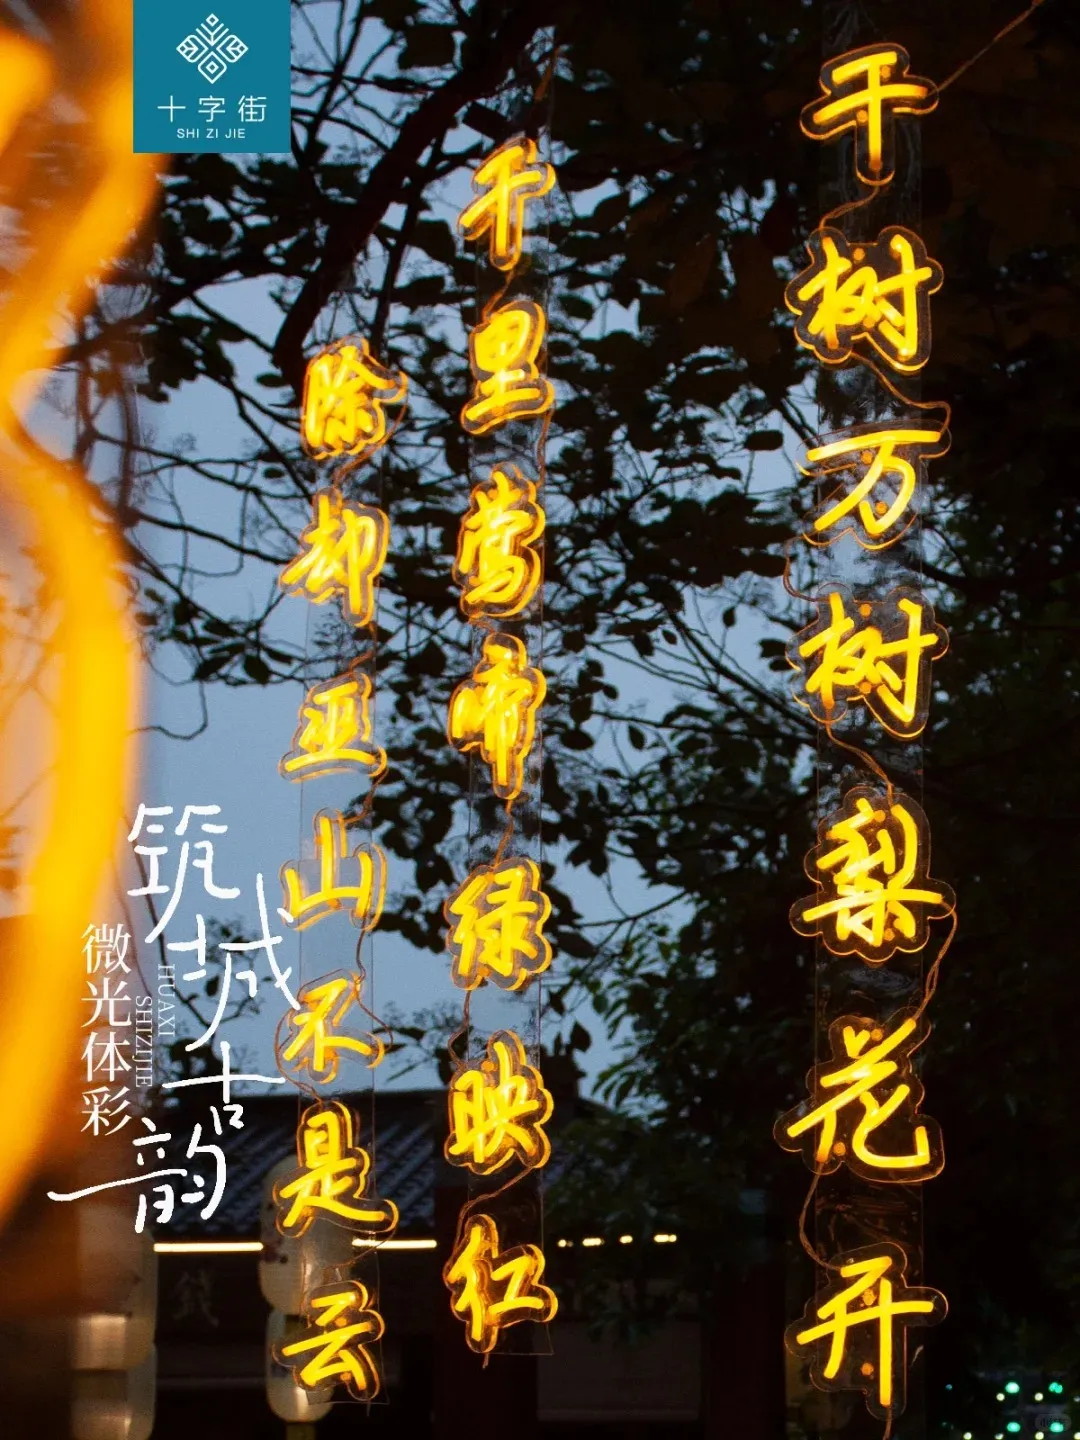 十字街
SHI ZI JIE
千树万树梨花开
千里莺啼绿映红
除却巫山不是云
筑城古韵
HUAXI
SHIZIJIE
微光体彩